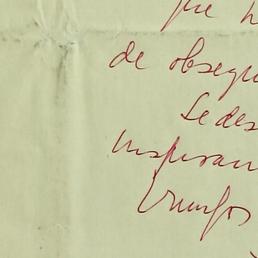 que h
de obsequ
Le des
inspiran
triunfos